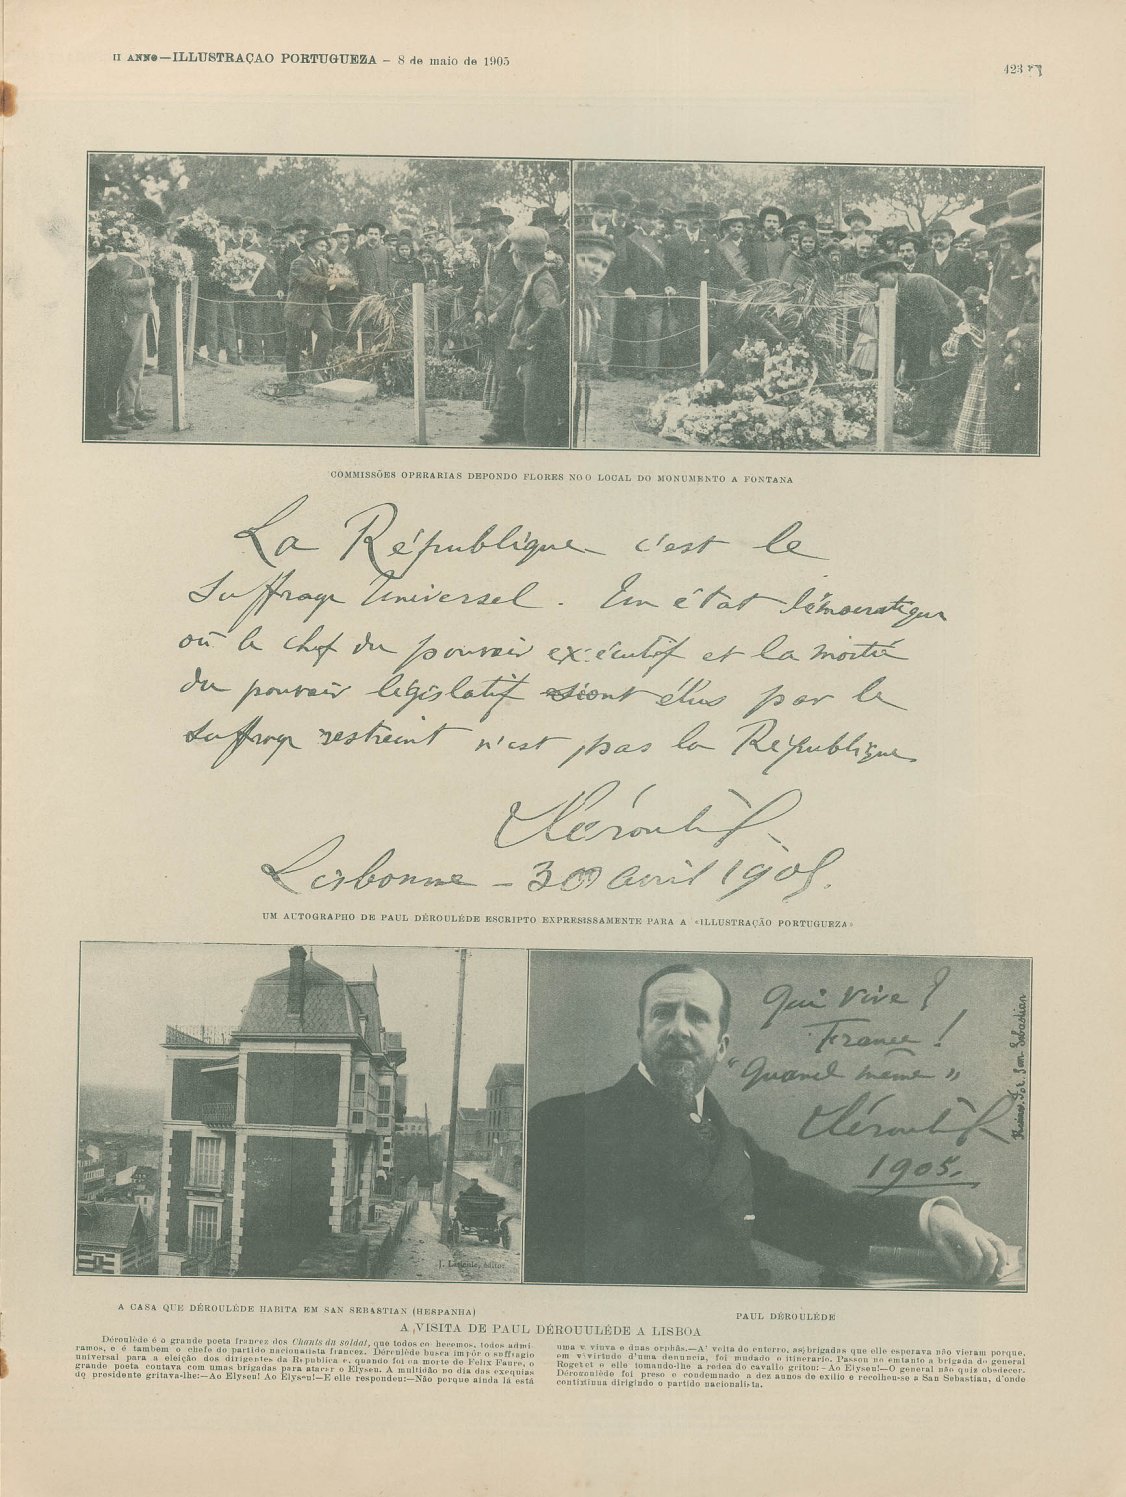 II ANNO—ILLUSTRAÇAO PORTUGUEZA – 8 de maio de 1905
423
COMMISSÕES OPERARIAS DEPONDO FLORES NO O LOCAL DO MONUMENTO A FONTANA
La République c'est le
suffrage Universel. Un état démocratique
où le chef du pouvoir exécutif et la moitié
du pouvoir législatif sont élus par le
suffrage restreint n'est pas la République
Déroulède
Lisbonne – 30 avril 1905.
UM AUTOGRAPHO DE PAUL DÉROULÉDE ESCRIPTO EXPRESISSAMENTE PARA A «ILLUSTRAÇÃO PORTUGUEZA»
Qui vive?
France!
"Quand même"
Déroulède
1905.
San Sebastian
J. Laborde, éditor
A CASA QUE DÉROULÉDE HABITA EM SAN SEBASTIAN (HESPANHA)
PAUL DÉROULÉDE
A VISITA DE PAUL DÉROUULÉDE A LISBOA
Déroulède é o grande poeta francez dos Chants du soldat, que todos co hecemos, todos admi-
ramos, e é tambem o chefe do partido nacionalista francez. Derrulède busca impôr o suffragio
universal para a eleição dos dirigentes da Republica e, quando foi da morte de Felix Faure, o
grande poeta contava com umas brigadas para atacar o Elyseu. A multidão no dia das exequias
do presidente gritava-lhe:—Ao Elyseu! Ao Elyseu!—E elle respondeu:—Não porque ainda lá está
uma v viuva e duas orphãs.—A' volta do enterro, as brigadas que elle esperava não vieram porque,
em vivirtude d'uma denuncia, foi mudado o itinerario. Passou no emtanto a brigada do general
Rogetet e elle tomando-lhe a rodea do cavallo gritou: - Ao Elyseu!—O general não quiz obedecer.
Dérouulède foi preso e condemnado a dez annos de exilio e recolheu-se a San Sebastian, d'onde
contixtinua dirigindo o partido nacionalista.